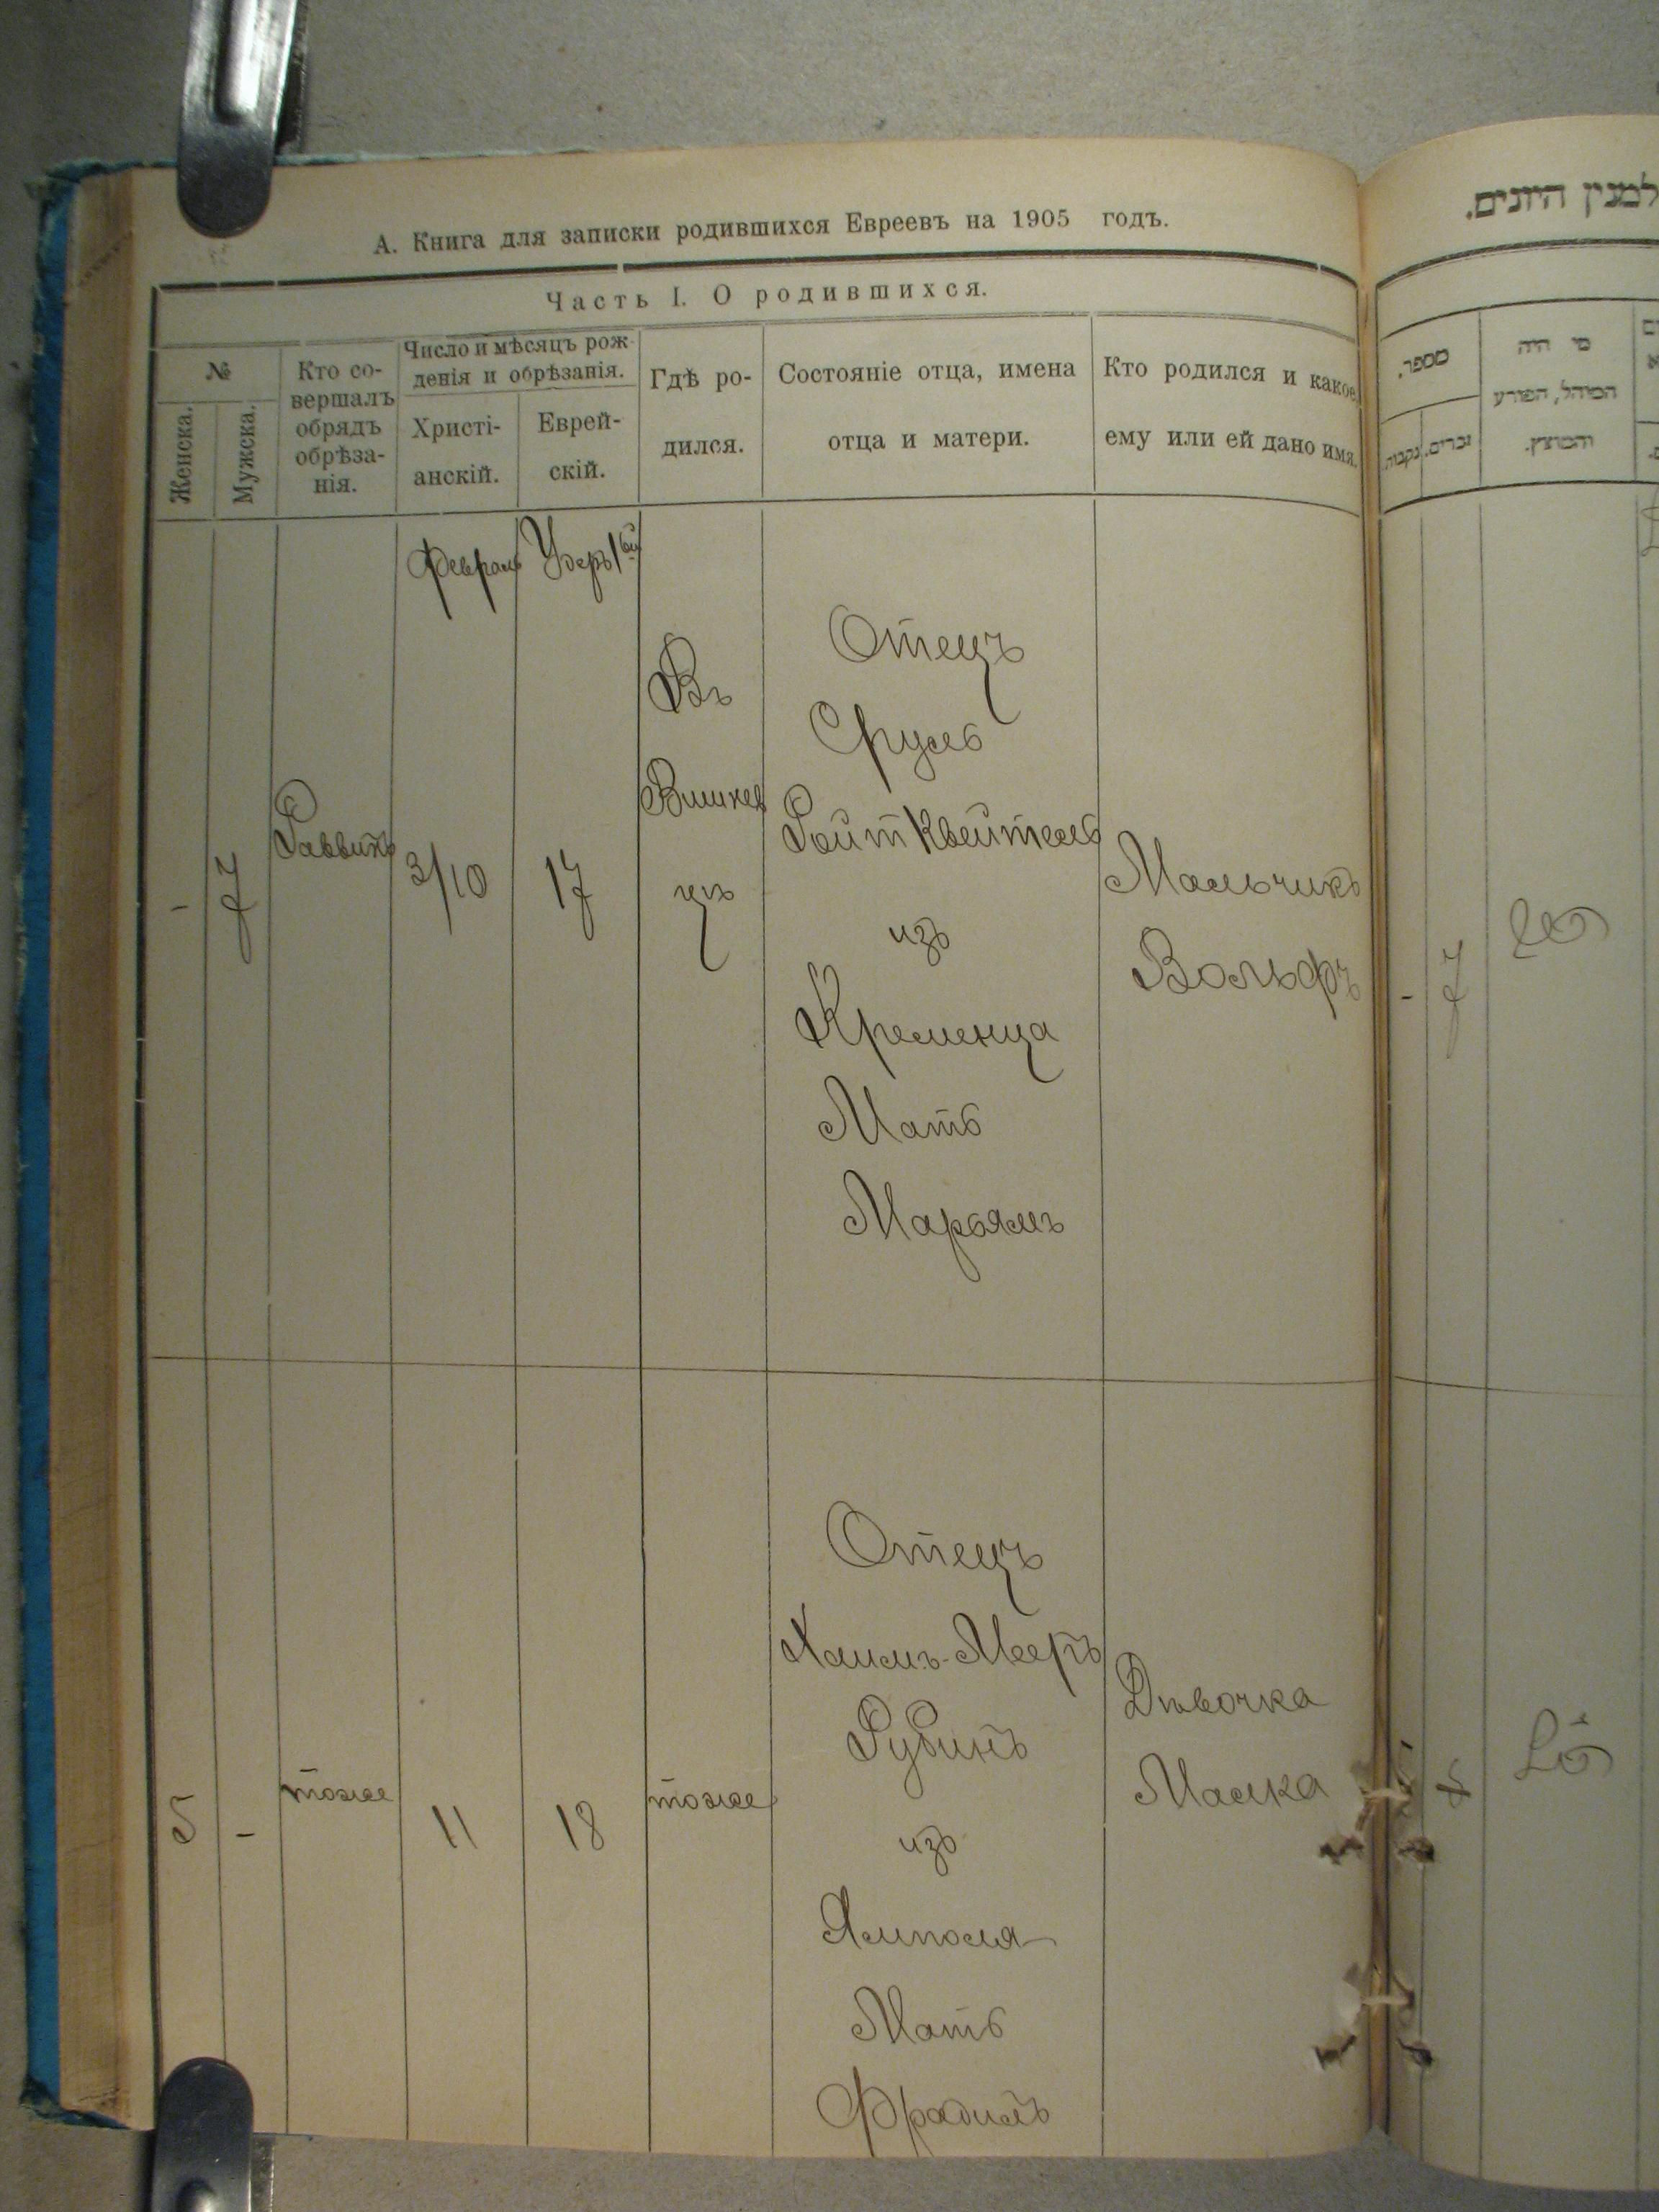 А. Книга для записки родившихся Евреевъ на 1905 годъ.
Часть I. О родившихся.
№
Женска.
Мужска.
Кто со-
вершалъ
обрядъ
обрѣза-
нія.
Число и мѣсяцъ рож-
денія и обрѣзанія.
Христі-
анскій.
Еврей-
скій.
Гдѣ ро-
дился.
Состояніе отца, имена
отца и матери.
Кто родился и какое
ему или ей дано имя.
-
7
Раввинъ
Февраль
3/10
17
Въ
Вишнев
цѣ
Отецъ
Сруль
Ройт Квейтель
изъ
Кременца
Мать
Марьямъ
Мальчикъ
Вольфъ
5
-
тоже
11
18
тоже
Отецъ
Хаимъ-Мееръ
Рубинъ
изъ
Ямполя
Мать
Фрадиль
Дѣвочка
Малка
למנין היונים.
מספר.
נקבות.
זכרים.
מי היה
המוהל, הפורע
והמוצץ.
-
7